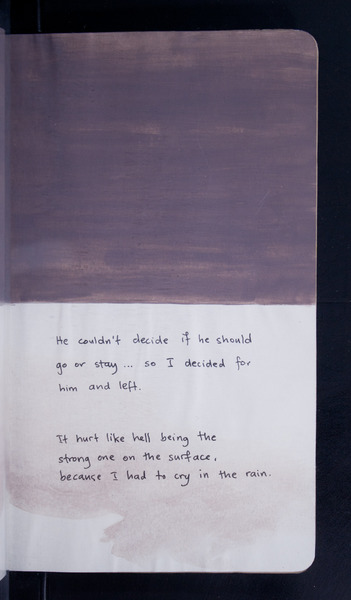 He couldn't decide if he should
go or stay... so I decided for
him and left.
It hurt like hell being the
strong one on the surface,
because I had to cry in the rain.